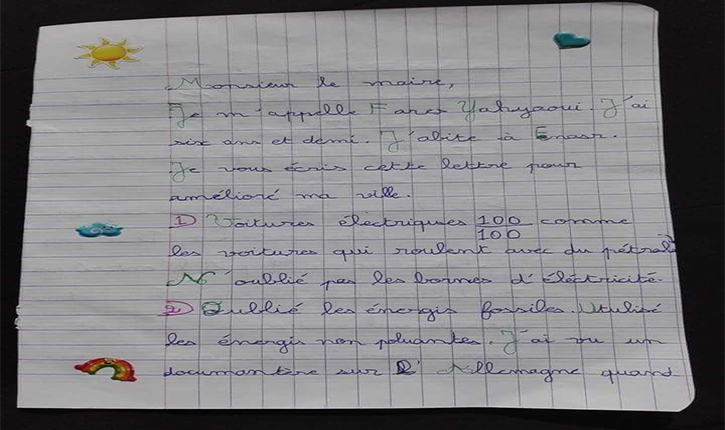 Monsieur le maire,
Je m'appelle Fares Yahyaoui. J'ai
six ans et demi. J'abite à Enasr.
Je vous écris cette lettre pour
amélioré ma ville.
1) Voitures électriques 100/100 comme
les voitures qui roulent avec du pétrol
N'oublié pas les bornes d'éléctricité.
2) Oublié les énergis fossiles. Utulisé
les énergis non poluantes. J'ai vu un
documantère sur l'Allemagne quand